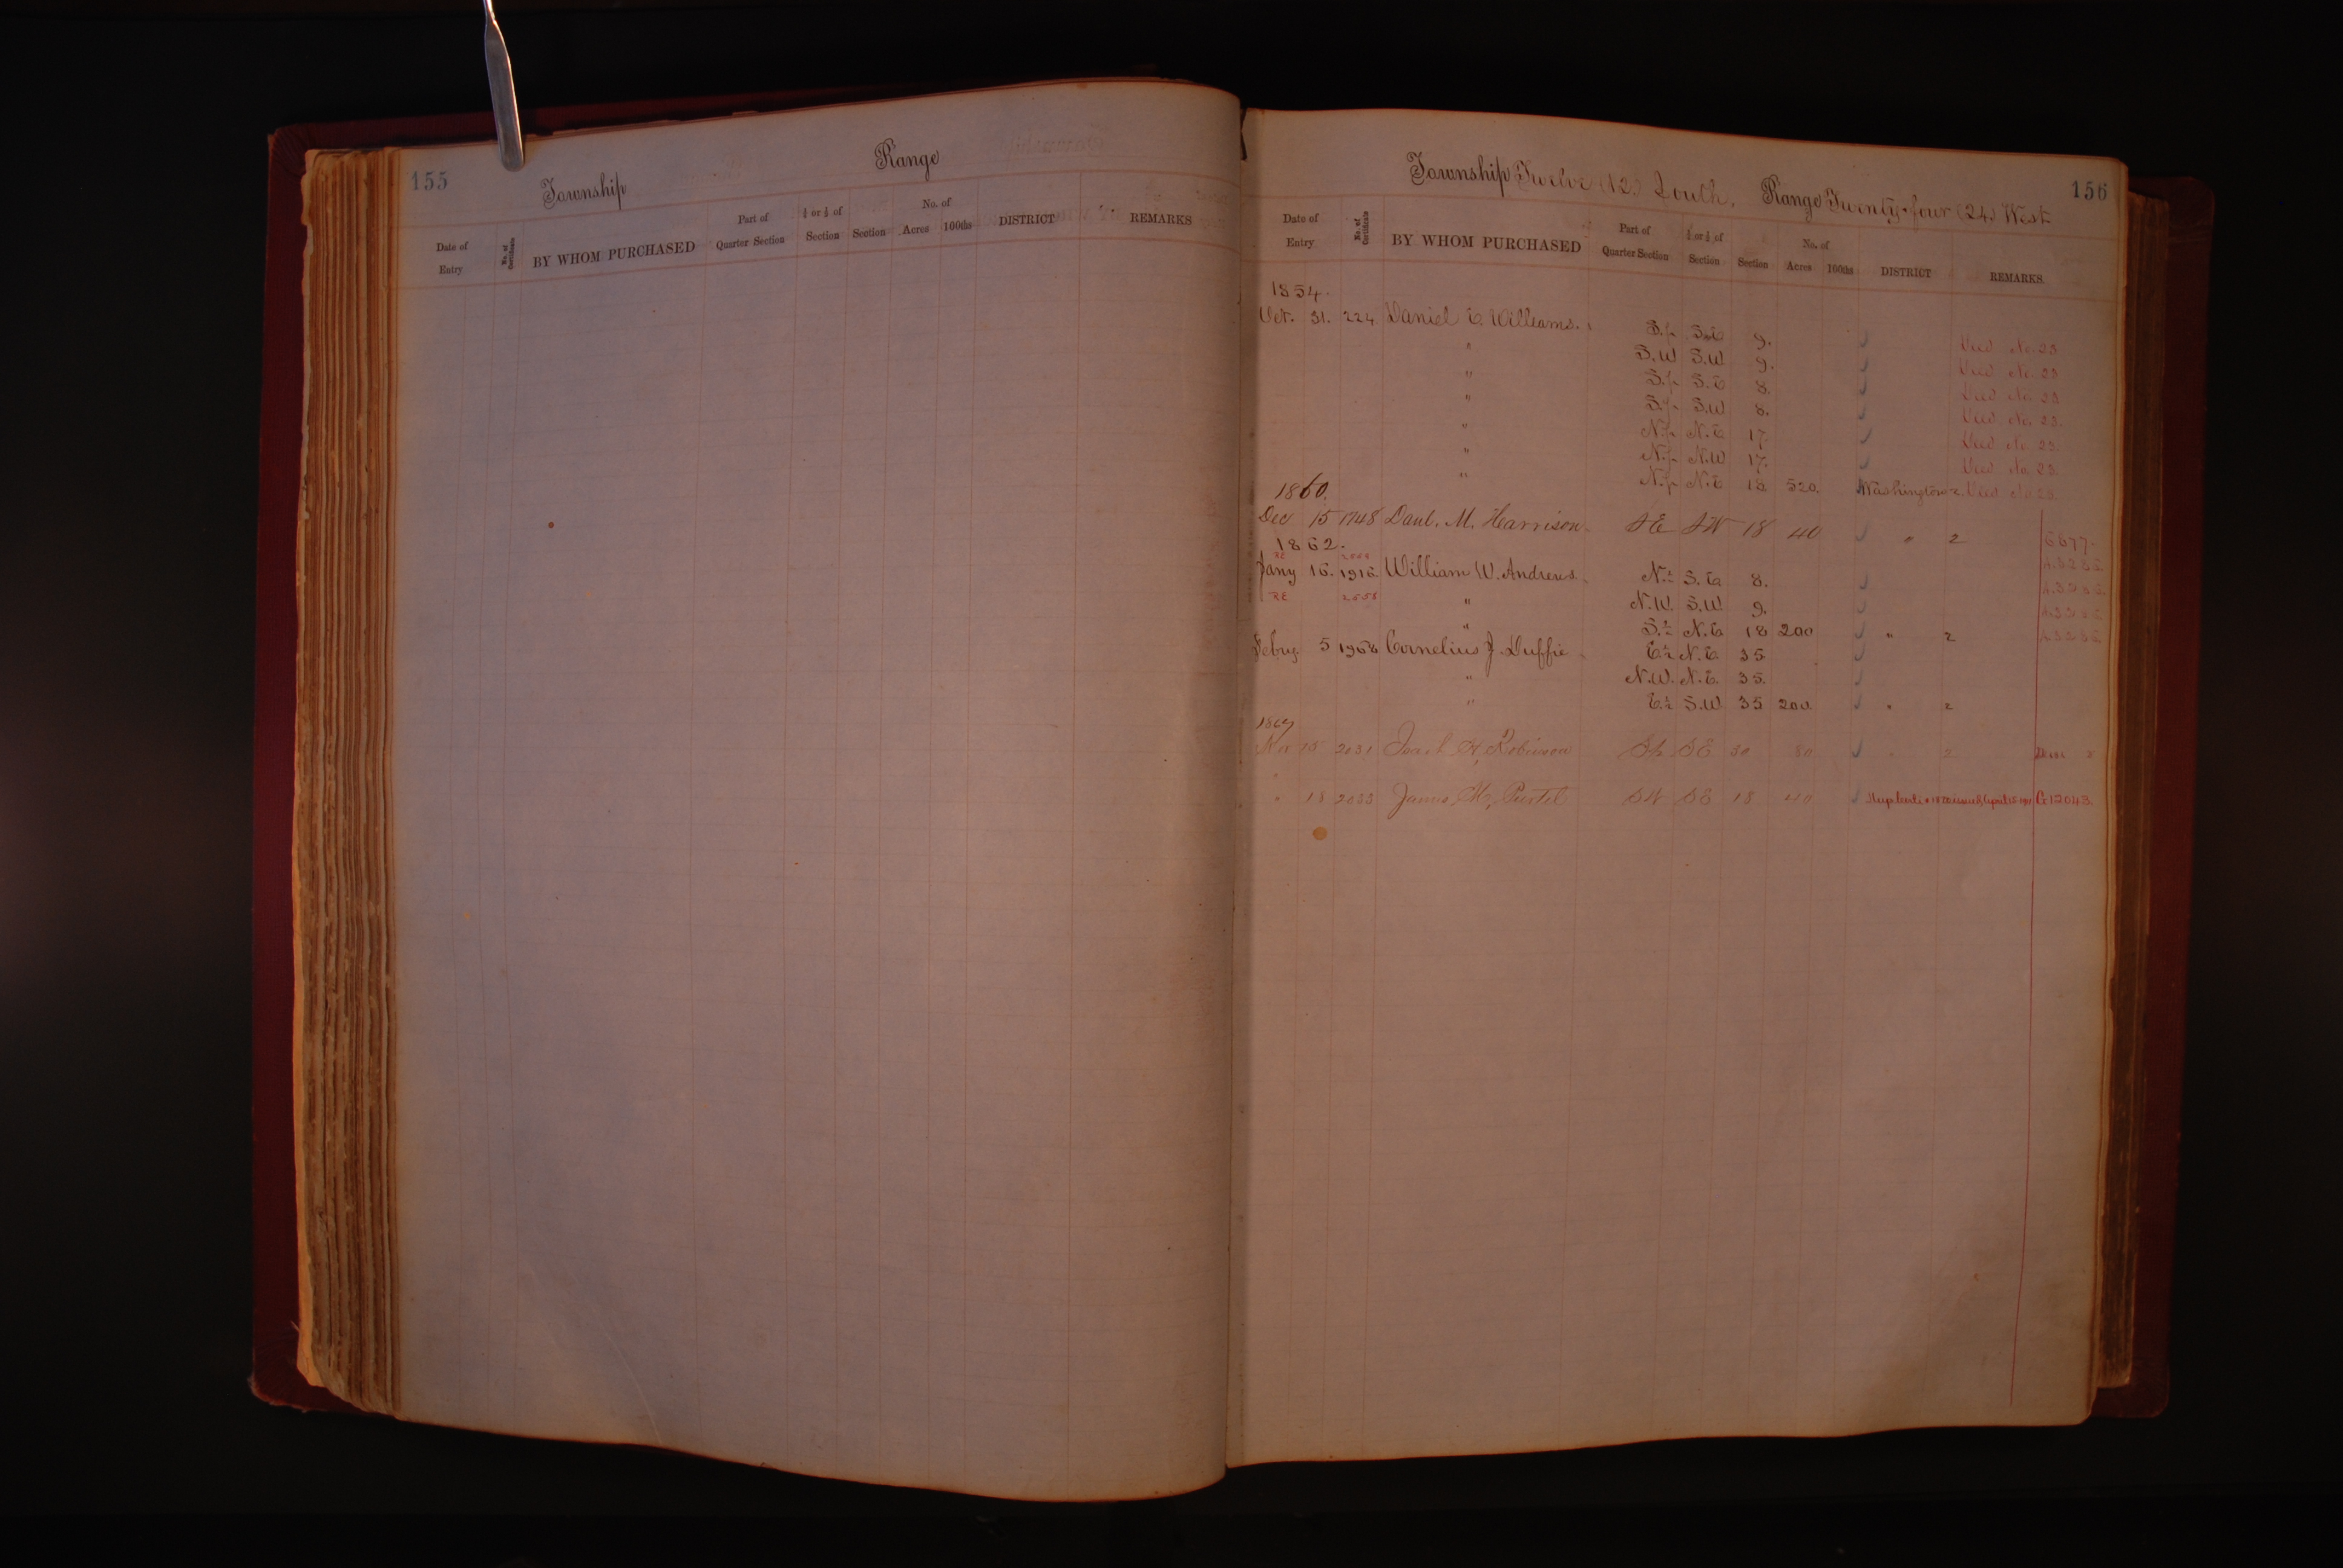 155
Township Range
Date of Entry No. of Certificate BY WHOM PURCHASED Part of Quarter Section ¼ or ½ of Section Section No. of Acres 100ths DISTRICT REMARKS
156
Township Twelve (12) South, Range Twenty-four (24) West.
Date of Entry No. of Certificate BY WHOM PURCHASED Part of Quarter Section ¼ or ½ of Section Section No. of Acres 100ths DISTRICT REMARKS.
1854.
Oct. 31. 224 Daniel E. Williams. S.½ S.E 9. Deed No. 23
" S.W S.W 9. Deed No. 23
" S.½ S.E 8. Deed No. 23
" S.½ S.W 8. Deed No. 23.
" N.½ N.E 17. Deed No. 23.
" N.½ N.W 17. Deed No. 23.
" N.½ N.E 18 520. Washington 2. Deed No. 23.
1860.
Dec 15 1748 Danl. M. Harrison SE SW 18 40 " 2 6677
1862.
RE
Jany 16. 1916. William W. Andrews. N.½ S.E 8.
RE
" N.W. S.W. 9.
" S.½ N.E 18 200 " 2
Febry. 5 1968 Cornelius J. Duffie E½ N.E. 35
" N.W. N.E. 35.
" E.½ S.W 35 200 " 2
15 2031 H, Robinson SE 30 80 " 2
" 18 2033 James M, SW SE 18 40 12043.